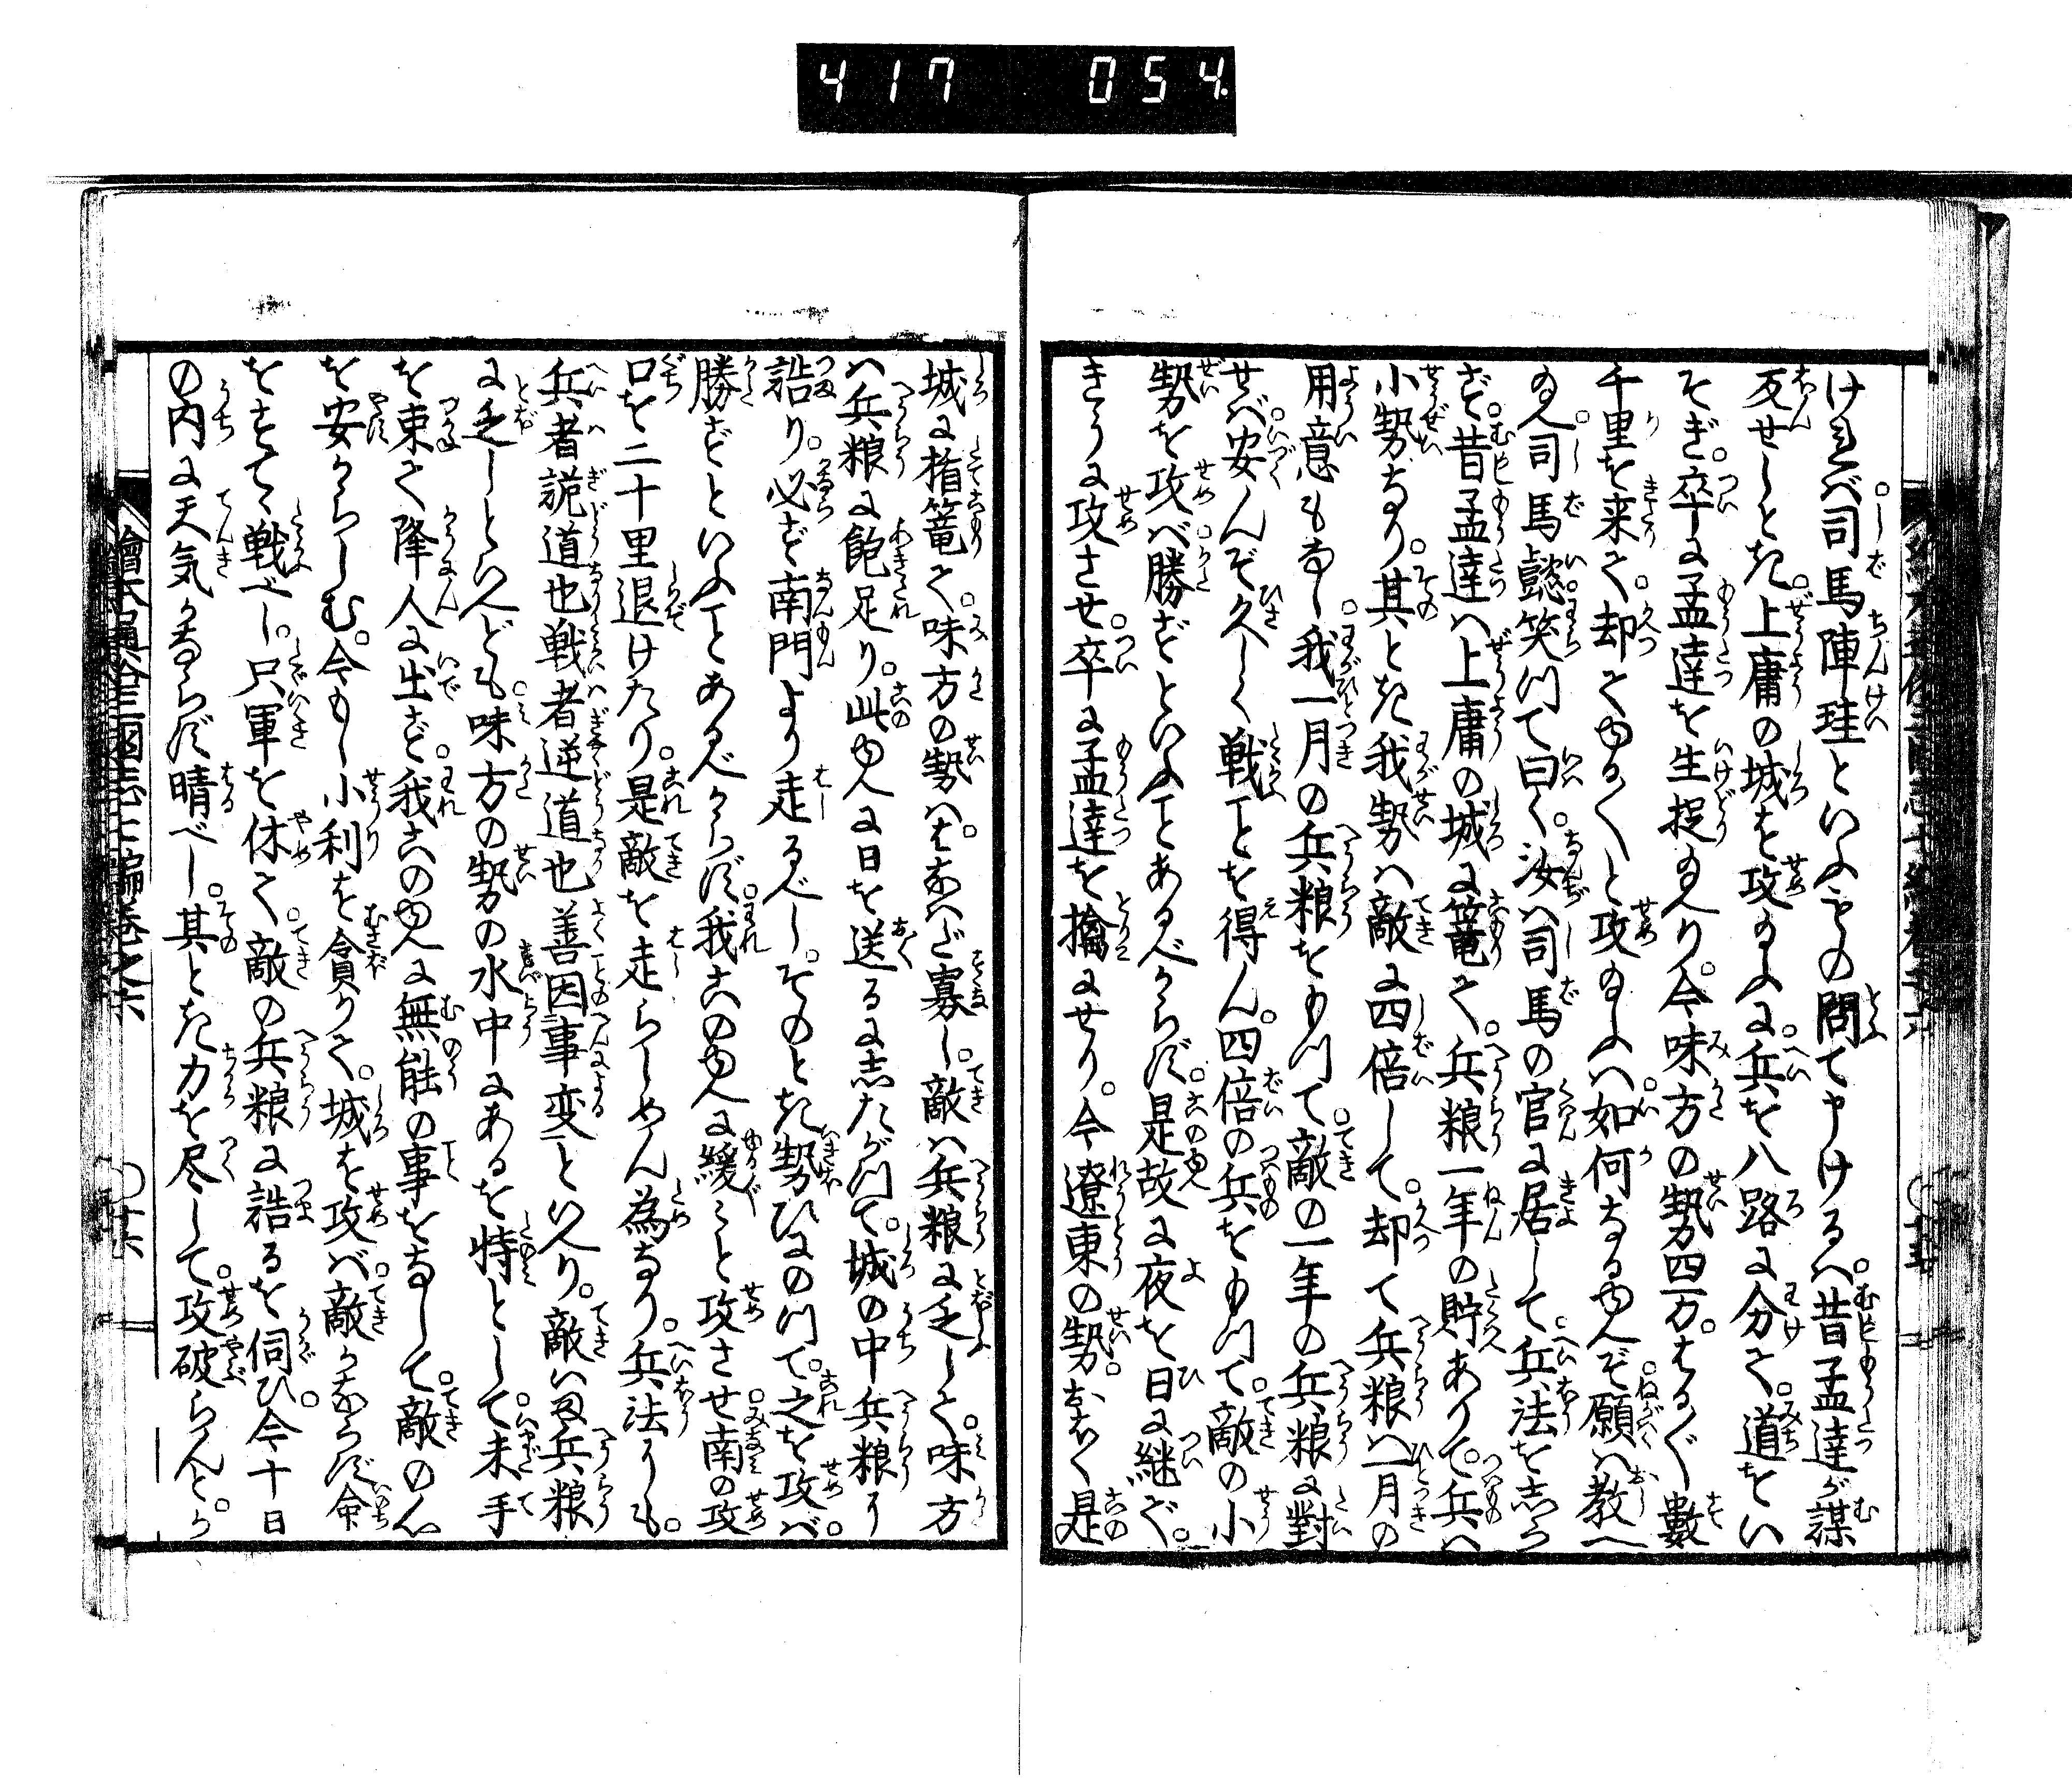 417 054
けれバ司馬陳珪といふもの問て申けるハ。昔孟達が謀
反せしとき。上庸の城を攻玉ふに。兵を八路に分て。道をい
そぎ。卒に孟達を生捉玉へり。今味方の勢四万。はる〲数
千里を来て。却てゆる〱と攻玉ふハ。如何なるゆへぞ。願ハ教へ
玉へ。司馬懿。笑川て曰く。汝ハ司馬の官に居して。兵法を志ら
ず。昔孟達ハ上庸の城に篭て。兵粮一年の貯ありて。兵ハ
小勢なり。其とき我勢ハ敵に四倍して。却て兵粮ハ一月の
用意もなし。我一月の兵粮をもつて。敵の一年の兵粮に對
せバ。安んぞ久しく戦ことを得ん。四倍の兵をもつて。敵の小
勢を攻バ。勝ずといふことあるべからず。是故に夜を日に継ぐ。
きうに攻させ。卒に孟達を擒にせり。今遼東の勢。おほく是
城に楯篭て。味方の勢ハ。はなハだ寡し。敵ハ兵粮に乏して。味方
ハ兵粮に飽足り。此ゆへに日を送るに志たがつて。城の中兵粮に
詰り。必ず南門より走るべし。そのとき勢ひにのつて。之を攻バ。
勝ずといふことあるべからず。我このゆへに緩〻と攻させ。南の攻
口を二十里退けたり。是敵を走らしめん為なり。兵法にも。
兵者詭道也戦者逆道也善因事変といへり。敵いま兵粮
に乏しといへども。味方の勢の水中にあるを特として。未手
を束て降人に出ず。我このゆへに無能の事をなして。敵の心
を安からしむ。今もし小利を貪りて。城を攻バ。敵かならず命
をすてゝ戦べし。只軍を休て。敵の兵粮に詰るを伺ひ。今十日
の内に天気かならず晴べし。其とき力を尽して。攻破らんと。か
繪本通俗三國志七編巻之六
十六